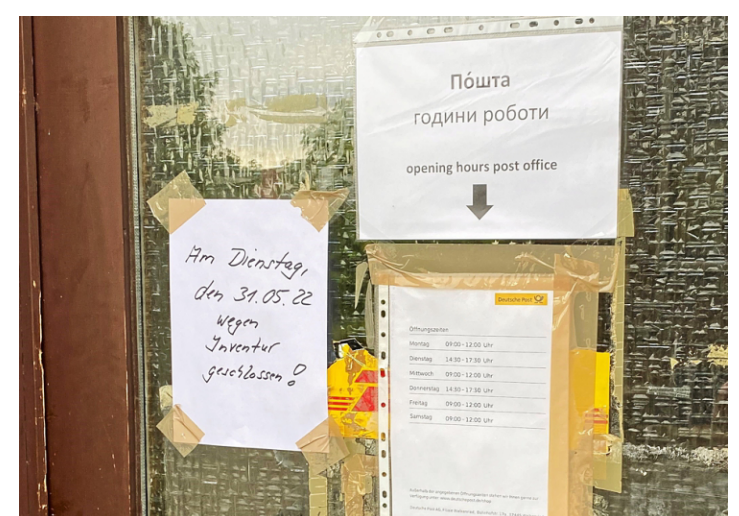 Пóшта
години роботи
opening hours post office
Am Dienstag,
den 31.05.22
wegen
Inventur
geschlossen!
Deutsche Post
Öffnungszeiten
Montag 09:00 - 12:00 Uhr
Dienstag 14:30 - 17:30 Uhr
Mittwoch 09:00 - 12:00 Uhr
Donnerstag 14:30 - 17:30 Uhr
Freitag 09:00 - 12:00 Uhr
Samstag 09:00 - 12:00 Uhr